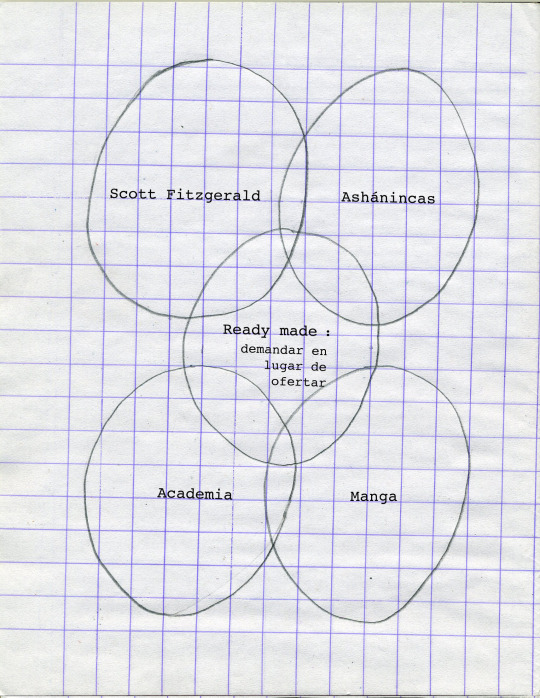 Scott Fitzgerald
Ashánincas
Ready made :
demandar en
lugar de
ofertar
Academia
Manga